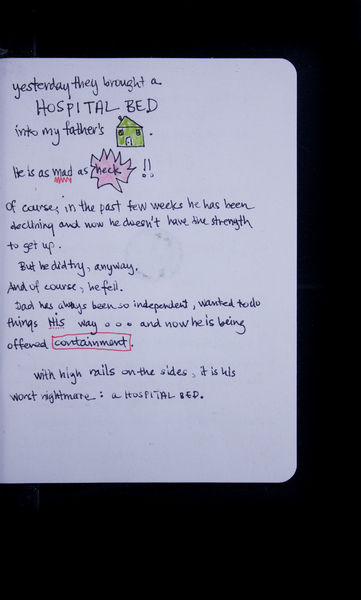 yesterday they brought a
HOSPITAL BED
into my father's .
He is as mad as heck !!
Of course, in the past few weeks he has been
declining and now he doesn't have the strength
to get up.
But he did try, anyway.
And of course, he fell.
Dad has always been so independent, wanted to do
things His way ... and now he is being
offered containment.
with high rails on the sides, it is his
worst nightmare: a HOSPITAL BED.